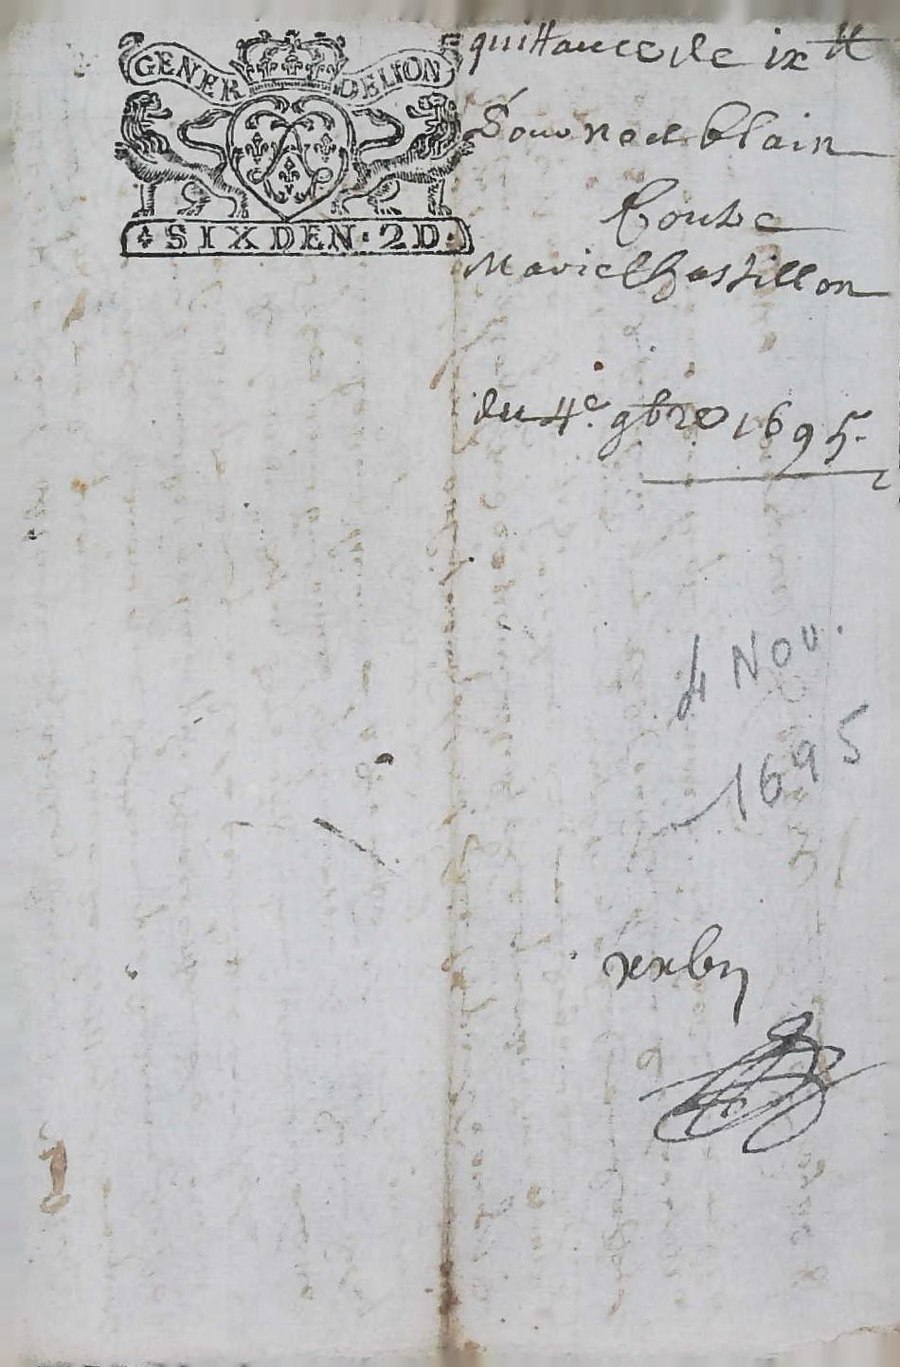 GENER DELION
✤ SIX DEN · 2D ·
quittance de ix ₶
Pour noel blain
Contre
Marie Chastillon
du 4e. 9bre 1695.
4 Nov.
1695